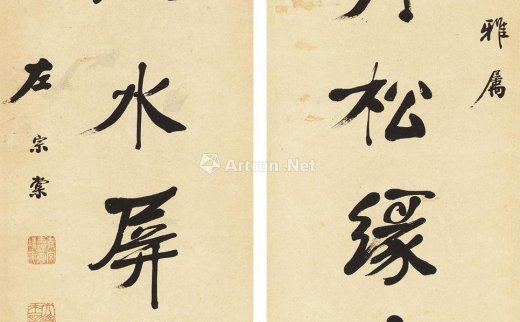 雅属
松缘
水屏
左宗棠
Artron.Net